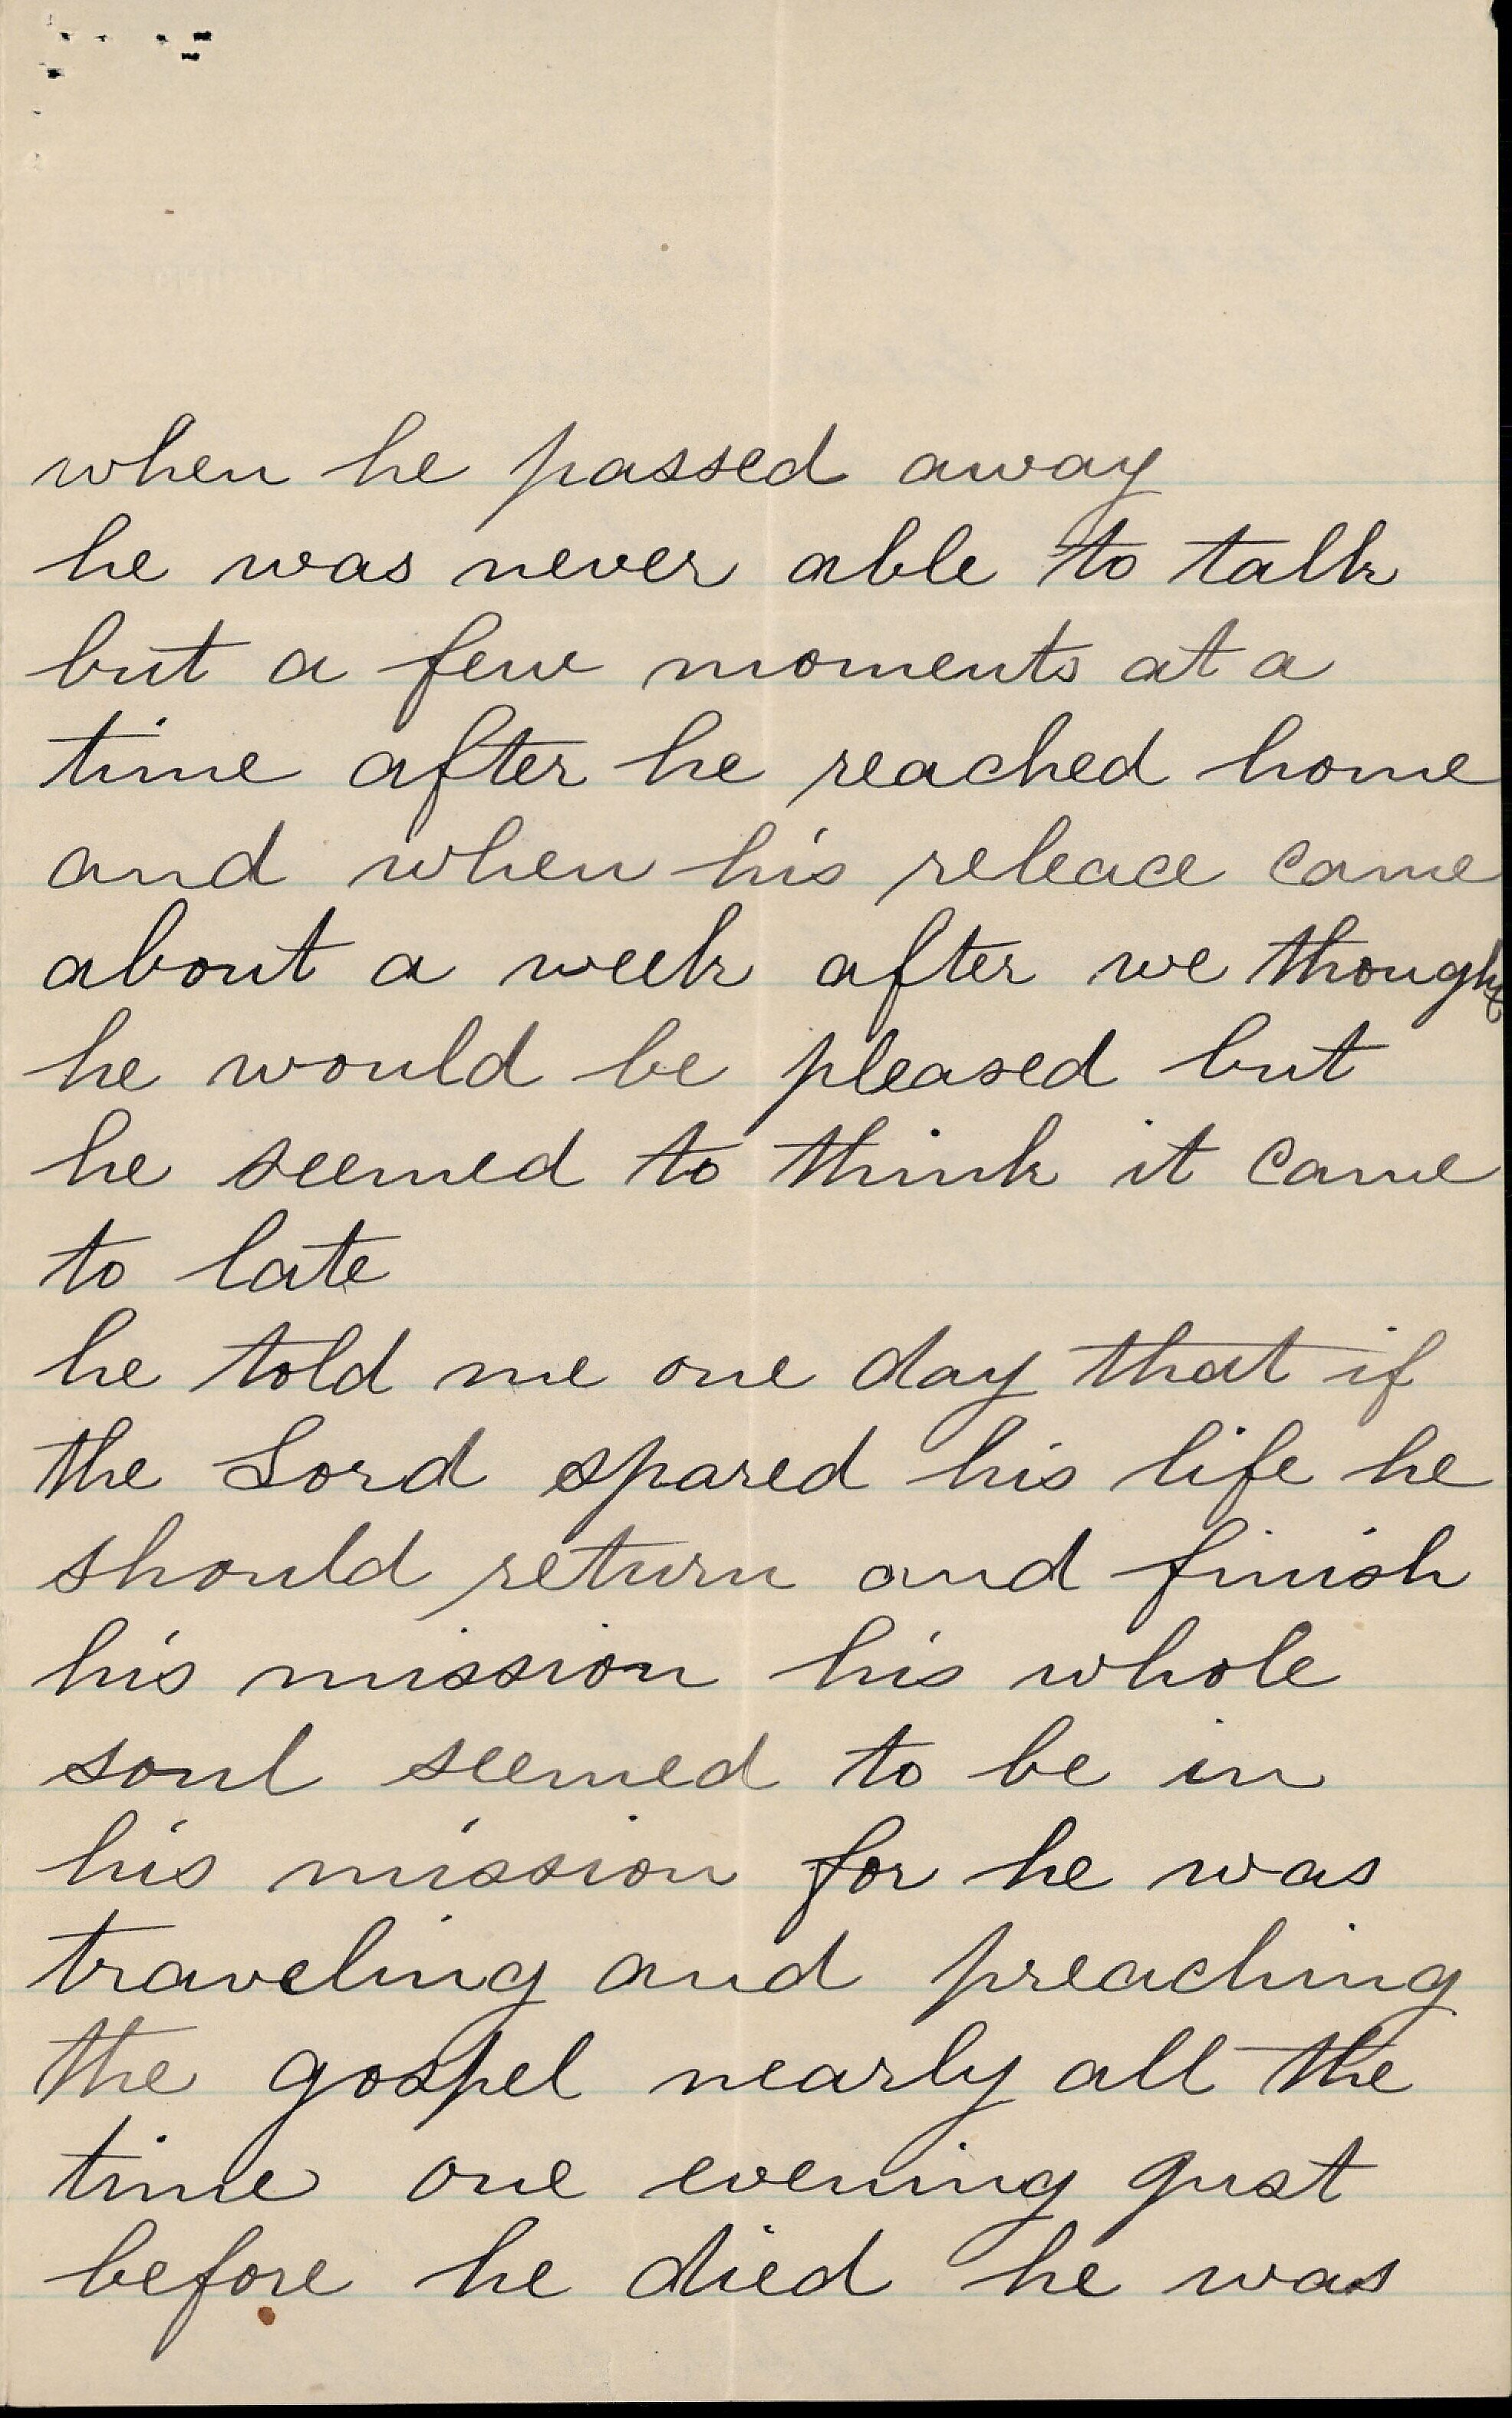 when he passed away
he was never able to talk
but a few moments at a
time after he reached home
and when his releace came
about a week after we thought
he would be pleased but
he seemed to think it came
to late
he told me one day that if
the Lord spared his life he
should return and finish
his mission his whole
soul seemed to be in
his mission for he was
traveling and preaching
the gospel nearly all the
time one evening gust
before he died he was